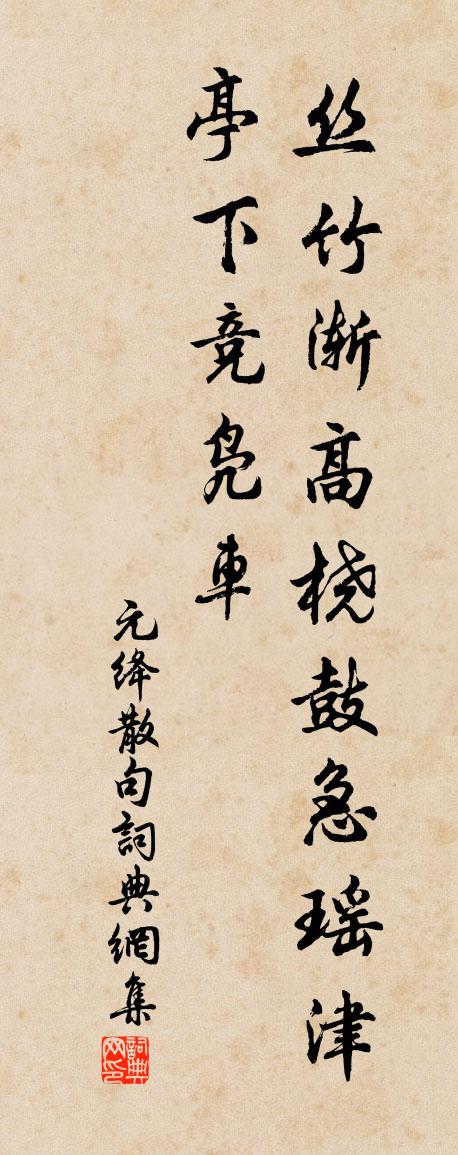 丝竹渐高桡鼓急瑶津
亭下竞凫車
元绛散句詞典網集
詞典网印